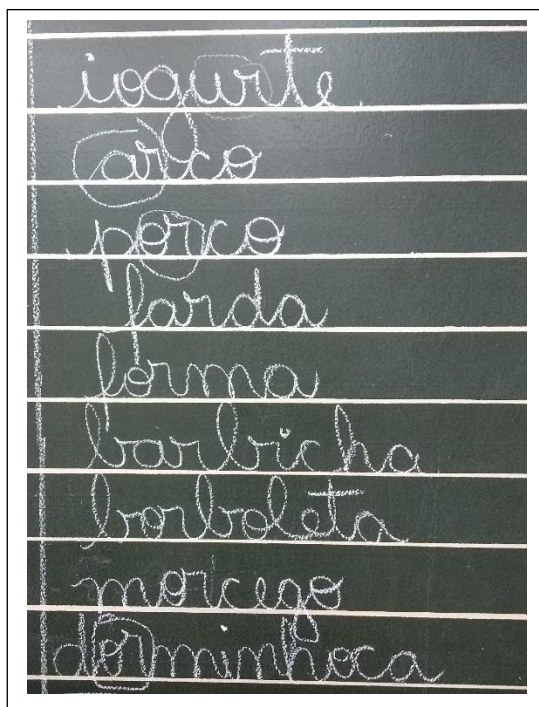 iogurte
arco
porco
farda
forma
barbicha
borboleta
morcego
dorminhoca